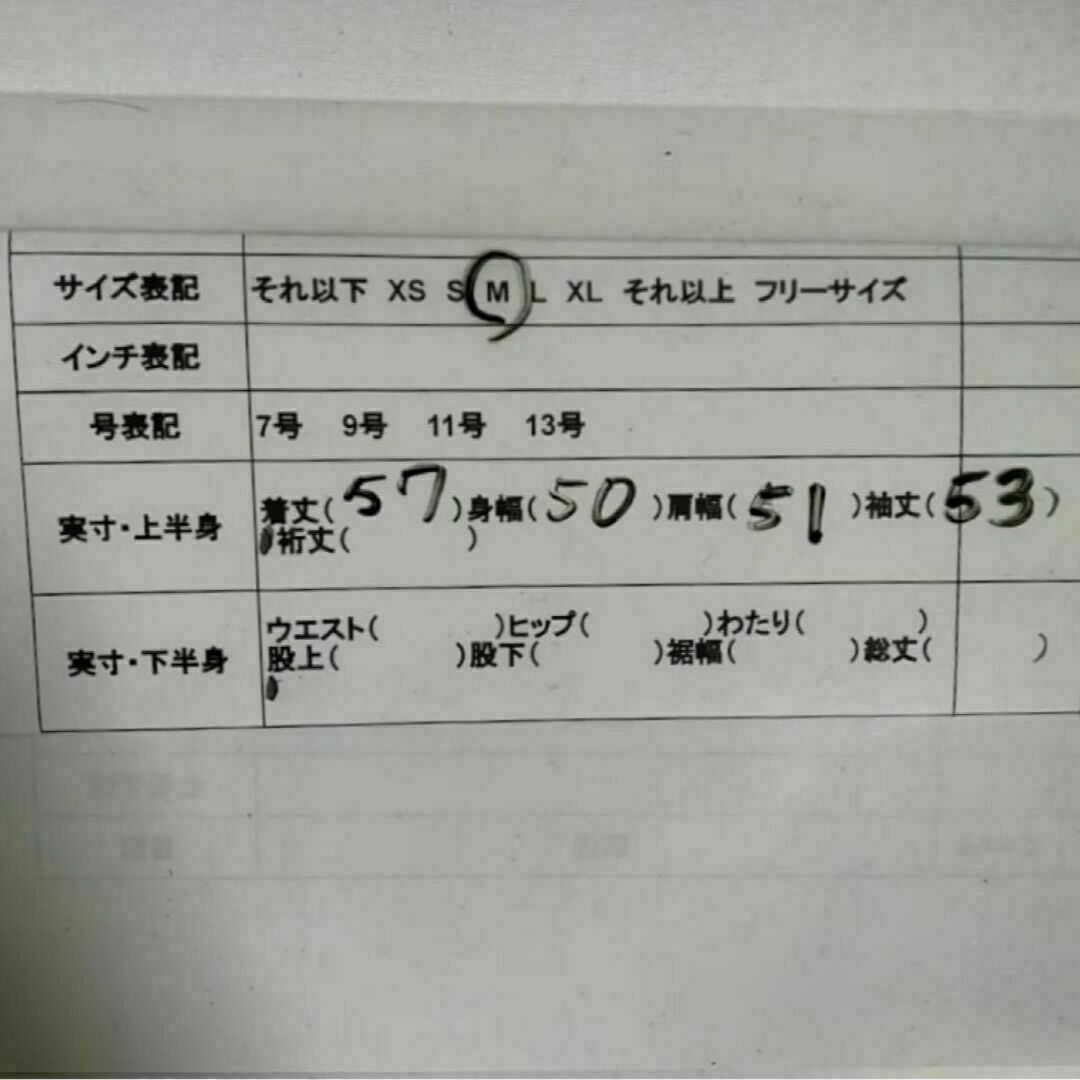 サイズ表記 それ以下 XS S M L XL それ以上 フリーサイズ
インチ表記
号表記 7号 9号 11号 13号
実寸・上半身 着丈(57)身幅(50)肩幅(51)袖丈(53)
裄丈( )
実寸・下半身 ウエスト( )ヒップ( )わたり( )
股上( )股下( )裾幅( )総丈( )